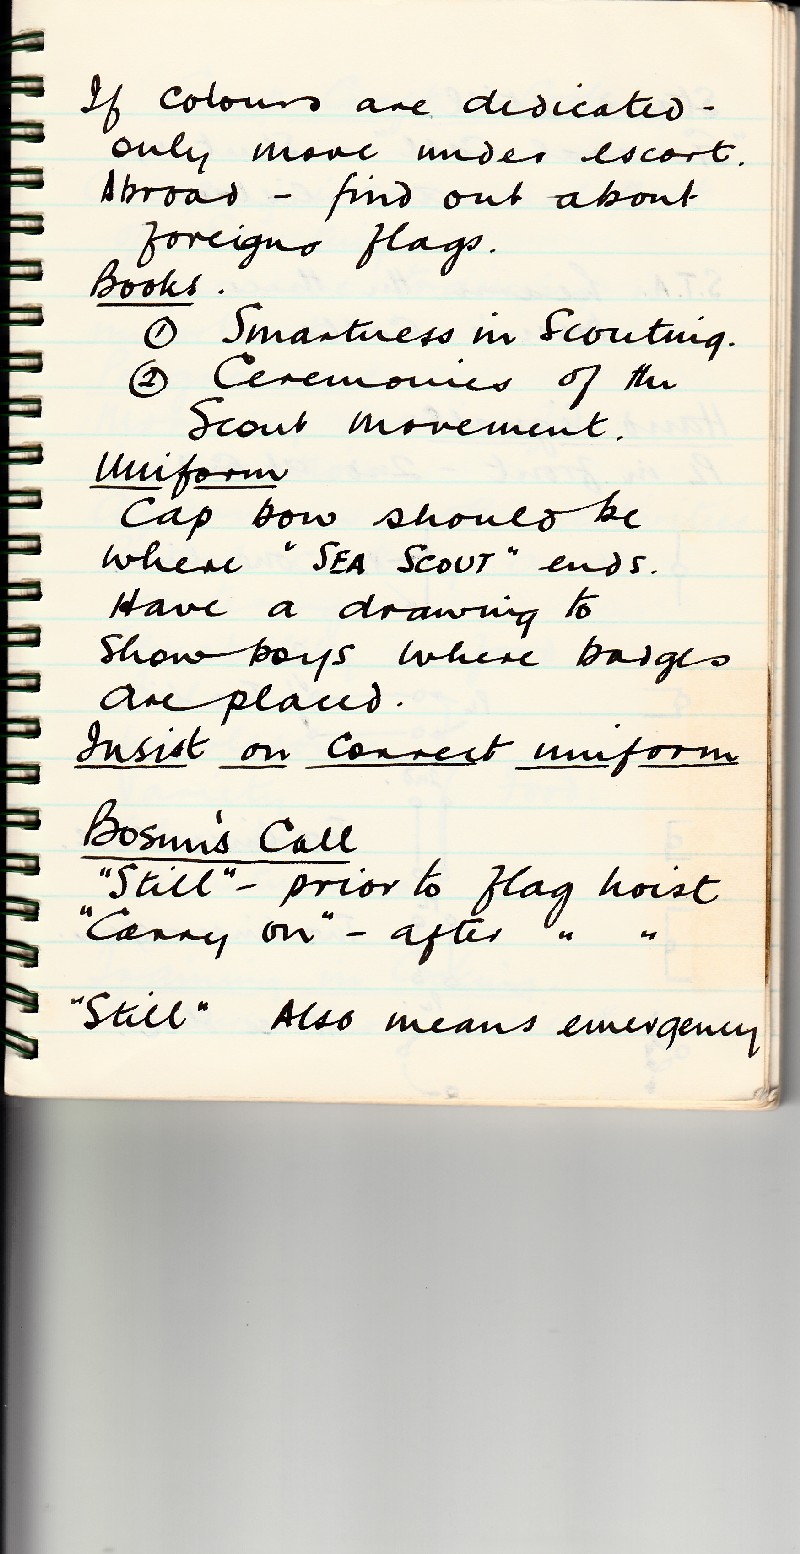 If colours are dedicated -
only move under escort.
Abroad - find out about
foreigns flags.
Books.
① Smartness in Scouting.
② Ceremonies of the
Scout Movement.
Uniform
Cap bow should be
where "SEA SCOUT" ends.
Have a drawing to
show boys where badges
are placed.
Insist on correct uniform
Bosun's Call
"Still" - prior to flag hoist
"Carry on" - after " "
"Still" Also means emergency